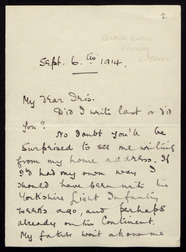 2
Sept. 6th 1914.
My Dear Iris.
Did I write last or did
you?
No doubt you'll be
surprised to see me writing
from my home address. If
I'd had my own way I
should have been with the
Yorkshire Light Infantry
weeks ago, and perhaps
already on the Continent.
My father won't allow me